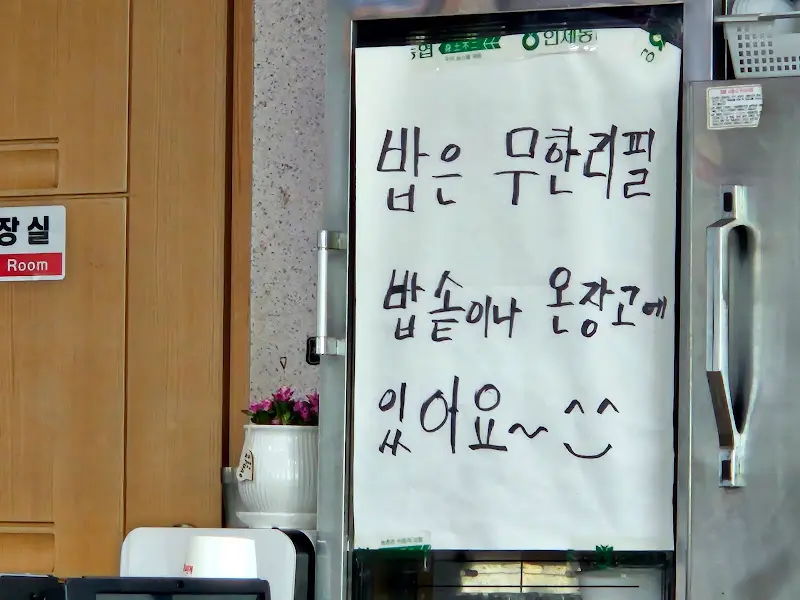 장실
Room
밥은 무한리필
밥솥이나 온장고에
있어요~ ^^